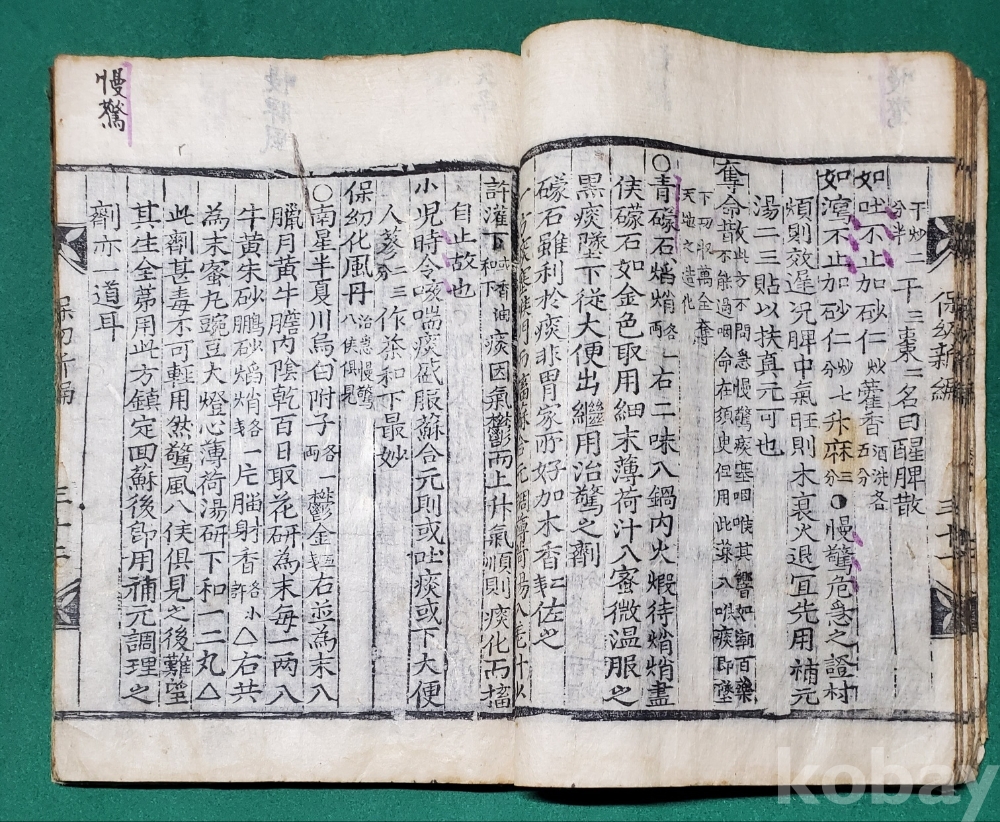 干炒二 干三 棗二 名曰醒脾散
分半
如吐不止加砂仁炒 藿香酒洗各五分
如瀉不止加砂仁炒七分 升麻三分 ●慢驚危急之證村
煩則效遲况脾中氣旺則木衰火退宜先用補元
湯二三貼以扶真元可也
奪命散
此方不問急慢驚痰塞咽喉其響如潮百藥
不能過咽命在須臾但用此藥入喉痰即墜
下功収萬全奪
天地之造化
○青礞石 焰焇各一兩 右二味入鍋內火煆待焇焇盡
侯礞石如金色取用細末薄荷汁入蜜微溫服之
黑痰墜下從大便出繼用治驚之劑
礞石雖利於痰非胃家所好加木香二戔佐之
許灌下 香油和下 痰因氣鬱而上升氣順則痰化而搐
自止故也
小児時令咳喘痰盛服蘇合元則或吐痰或下大便
人蔘二三分作茶和下最妙
保幼化風丹
治急慢驚
八侯俱見
○南星半夏川烏白附子各一兩 鬱金五戔 右並為末入
臘月黃牛膽內陰乾百日取花研為末每一兩入
牛黃朱砂鵬砂焰焇各一戔 片腦射香各小許 △右共
為末蜜丸豌豆大燈心薄荷湯研下和一二丸△
此劑甚毒不可輕用然驚風八侯俱見之後難望
其生全苐用此方鎮定回蘇後卽用補元調理之
劑亦一道耳
慢驚
保幼新編
三十一
保幼新編
三十二
kobay